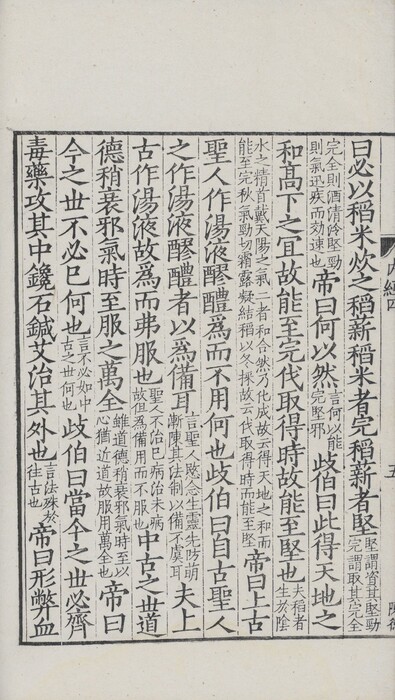 曰必以稻米炊之稻薪稻米者完稻薪者堅堅謂資其堅勁完謂取其完全
完全則酒清冷堅勁則氣迅疾而効速也帝曰何以然言何以能完堅邪歧伯曰此得天地之
和高下之宜故能至完伐取得時故能至堅也夫稻者生於陰
水之精首戴天陽之氣二者和合然乃化成故云得天地之和而能至完秋氣勁切霜露凝結稻以冬採故云伐取得時而能至堅帝曰上古
聖人作湯液醪醴為而不用何也歧伯曰自古聖人
之作湯液醪醴者以為備耳言聖人愍念生靈先防萌漸陳其法制以備不虞耳夫上
古作湯液故為而弗服也聖人不治已病治未病故但為備用而不服也中古之世道
德稍衰邪氣時至服之萬全雖道德稍衰邪氣時至以心猶近道故服用萬全也帝曰
今之世不必已何也言不必如中古之世何也歧伯曰當今之世必齊
毒藥攻其中鑱石鍼艾治其外也言法殊於往古也帝曰形弊血
內經四
五